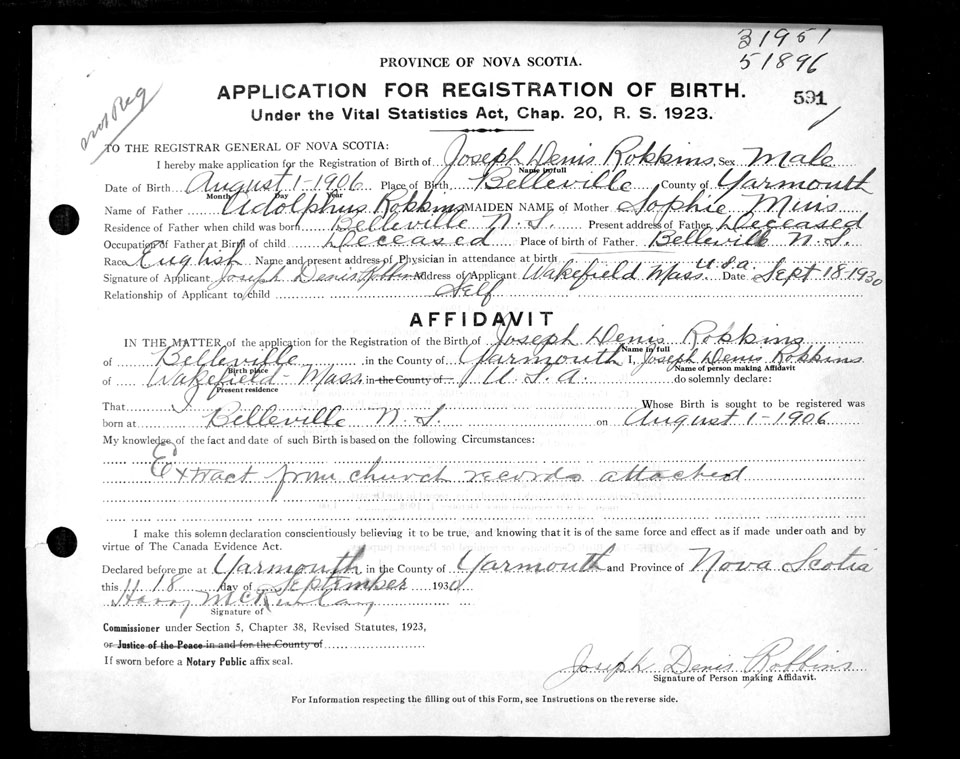 31951
51896
PROVINCE OF NOVA SCOTIA.
APPLICATION FOR REGISTRATION OF BIRTH.
591
Under the Vital Statistics Act, Chap. 20, R. S. 1923.
not Reg
TO THE REGISTRAR GENERAL OF NOVA SCOTIA:
I hereby make application for the Registration of Birth of Joseph Denis Robbins Sex Male
Name in full
Date of Birth August 1-1906 Place of Birth Belleville County of Yarmouth
Month Day Year
Name of Father Adolphus Robbins MAIDEN NAME of Mother Sophie Mius
Residence of Father when child was born Belleville N. S. Present address of Father Deceased
Occupation of Father at Birth of child Deceased Place of birth of Father Belleville N. S.
Race English Name and present address of Physician in attendance at birth
Signature of Applicant Joseph Denis Robbins Address of Applicant Wakefield Mass. U.S.a. Date Sept 18-1930
Relationship of Applicant to child Self
AFFIDAVIT
IN THE MATTER of the application for the Registration of the Birth of Joseph Denis Robbins
Name in full
of Belleville in the County of Yarmouth I, Joseph Denis Robbins
Birth place Name of person making Affidavit
of Wakefield - Mass. in the County of U. S. A. do solemnly declare:
Present residence
That Whose Birth is sought to be registered was
born at Belleville N. S. on August 1-1906
My knowledge of the fact and date of such Birth is based on the following Circumstances:
Extract from church records attached
I make this solemn declaration conscientiously believing it to be true, and knowing that it is of the same force and effect as if made under oath and by
virtue of The Canada Evidence Act.
Declared before me at Yarmouth in the County of Yarmouth and Province of Nova Scotia
this 18 day of September 1930
Signature of
Commissioner under Section 5, Chapter 38, Revised Statutes, 1923,
or Justice of the Peace in and for the County of
If sworn before a Notary Public affix seal.
Joseph Denis Robbins
Signature of Person making Affidavit.
For Information respecting the filling out of this Form, see Instructions on the reverse side.